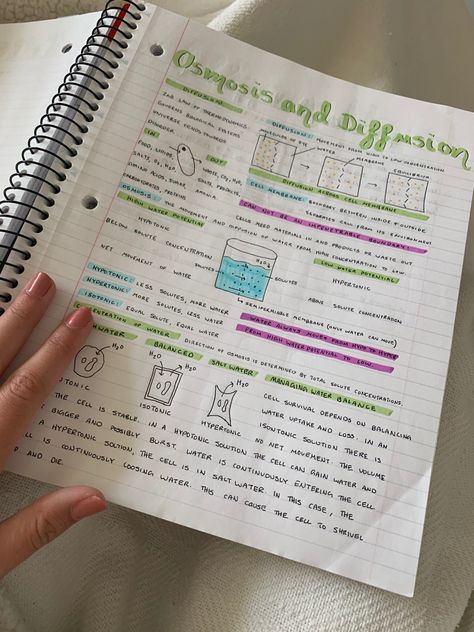 Osmosis and Diffusion
DIFFUSION
2nd LAW OF THERMODYNAMICS
GOVERNS BIOLOGICAL SYSTEMS
UNIVERSE TENDS TOWARDS
DISORDER
IN
FOOD,
SALTS, O₂, H₂O
AMINO ACIDS, SUGAR
CARBOHYDRATES, PROTEINS
OUT
WASTE, O₂, H₂O
SALTS, PRODUCTS,
AMMONIA
DIFFUSION: MOVEMENT FROM HIGH TO LOW CONCENTRATION
MOLECULES OF DYE
WATER
MEMBRANE
EQUILIBRIUM
DIFFUSION ACROSS CELL MEMBRANE
CELL MEMBRANE: BOUNDARY BETWEEN INSIDE + OUTSIDE
SEPARATES CELL FROM ITS ENVIRONMENT
CAN NOT BE AN IMPENETRABLE BOUNDARY!
CELLS NEED MATERIALS IN AND PRODUCTS OR WASTE OUT
OSMOSIS: THE MOVEMENT AND DIFFUSION OF WATER FROM HIGH CONCENTRATION TO LOW.
HIGH WATER POTENTIAL
HYPOTONIC
BELOW SOLUTE CONCENTRATION
NET MOVEMENT OF WATER
H₂O
SOLUTES
SOLUTES
SEMIPERMEABLE MEMBRANE (ONLY WATER CAN MOVE)
LOW WATER POTENTIAL
HYPERTONIC
ABOVE SOLUTE CONCENTRATION
HYPOTONIC: LESS SOLUTES, MORE WATER
HYPERTONIC: MORE SOLUTES, LESS WATER
ISOTONIC: EQUAL SOLUTE, EQUAL WATER
WATER ALWAYS MOVES FROM HYPO TO HYPER
FROM HIGH WATER POTENTIAL TO LOW
CONCENTRATION OF WATER: DIRECTION OF OSMOSIS IS DETERMINED BY TOTAL SOLUTE CONCENTRATIONS.
BALANCED
SALT WATER
H₂O
H₂O
H₂O
ISOTONIC
HYPERTONIC
MANAGING WATER BALANCE
CELL SURVIVAL DEPENDS ON BALANCING
WATER UPTAKE AND LOSS. IN AN
ISONTONIC SOLUTION THERE IS
NO NET MOVEMENT. THE VOLUME
THE CELL IS STABLE. IN A HYPOTONIC SOLUTION THE CELL CAN GAIN WATER AND
BIGGER AND POSSIBLY BURST. WATER IS CONTINUOUSLY ENTERING THE CELL
A HYPERTONIC SOLUTION, THE CELL IS IN SALT WATER. IN THIS CASE, THE
IS CONTINUOUSLY LOOSING WATER. THIS CAN CAUSE THE CELL TO SHRIVEL
AND DIE.